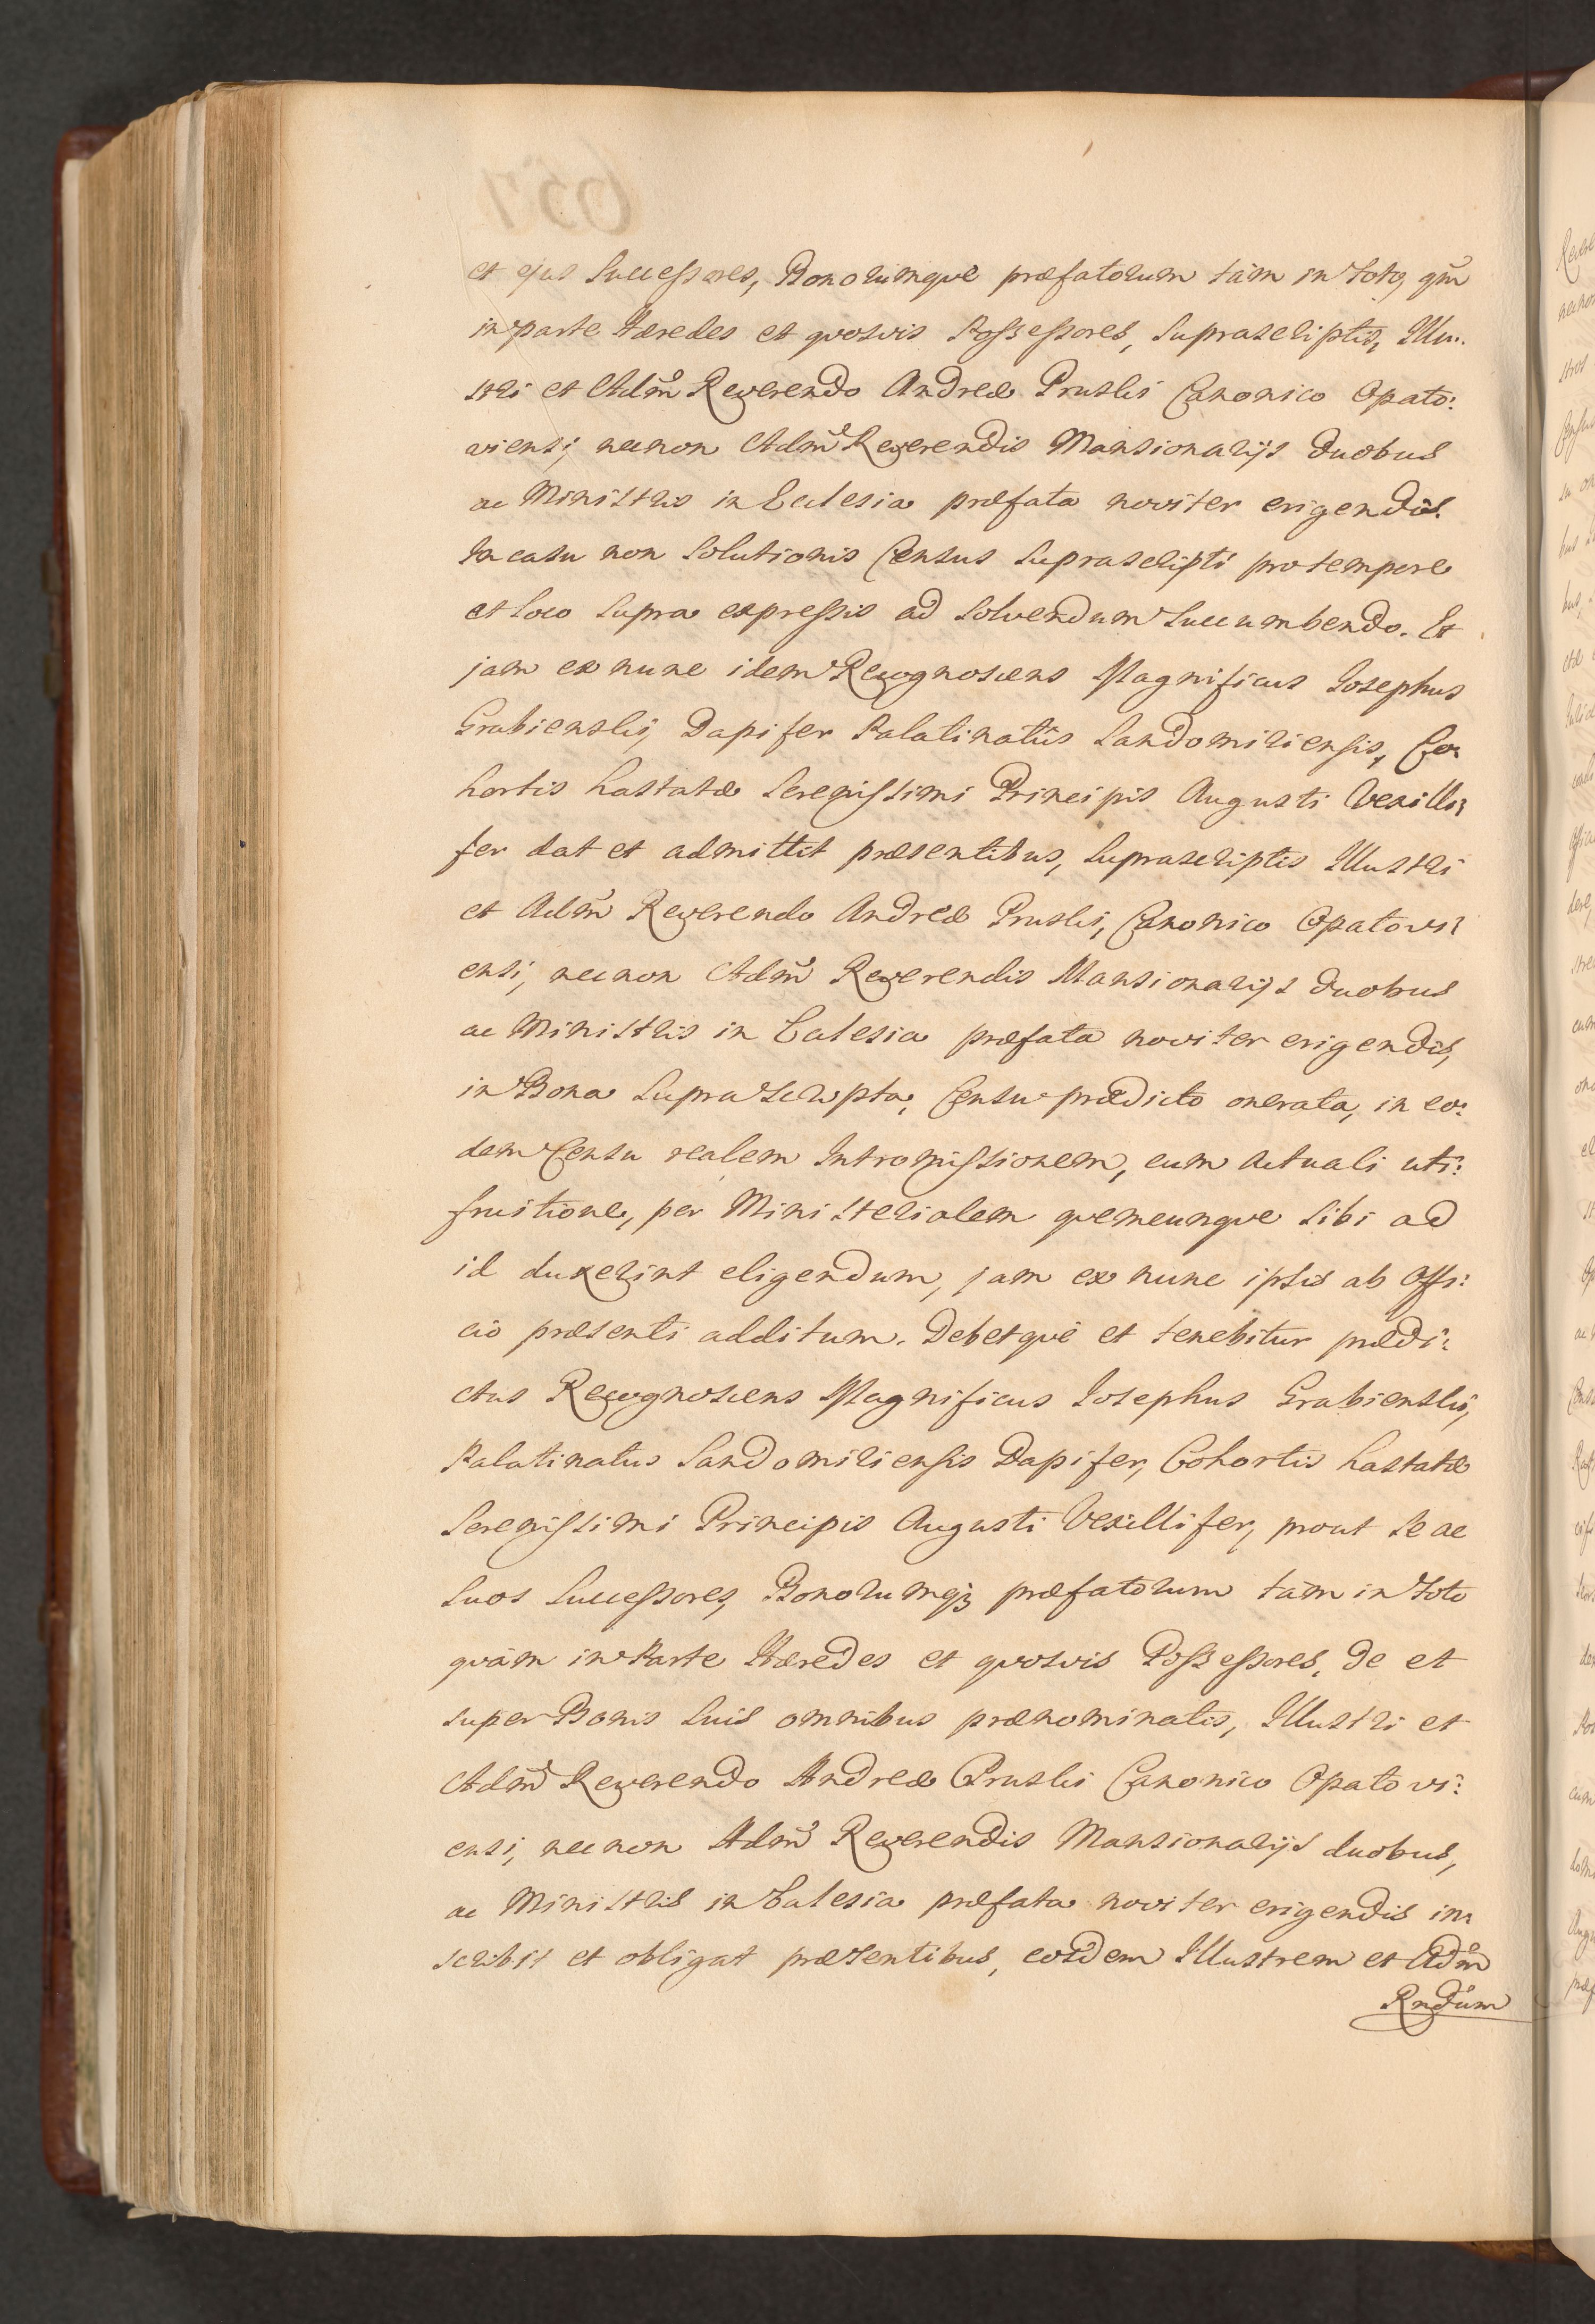 et ejus Successores, Bonorumque præfatorum tàm in toto, qm̃
in parte Hæredes et quosvis Possessores, Suprascriptis, Illu:
stri et Adm̃ Reverendo Andreæ Pruski Canonico Opato:
viensi, necnon Adm̃ Reverendis Mansionarijs duobus
ac Ministris in Ecclesia præfata noviter erigendis.
In casu non Solutionis Census Suprascripti pro tempore
et loco Supra expressis ad Solvendum Succumbendo. Et
jam ex nunc idem Recognoscens Magnificus Josephus
Grabienski, Dapifer Palatinatûs Sandomiriensis, Co:
hortis hastatæ Serenissimi Principis Augusti Vexilli:
fer dat et admittit præsentibus, Suprascriptis Illustri
et Adm̃ Reverendo Andreæ Pruski, Canonico Opatovi:
ensi, necnon Adm̃ Reverendis Mansionarijs duobus
ac Ministris in Eccłesia præfata noviter erigendis,
in Bona Suprascripta, Censu prædicto onerata, in eo:
dem Censu realem Intromissionem, cum actuali uti:
fruitione, per Ministerialem quemcunque Sibi ad
id duxerint eligendum, jam ex nunc ipsis ab Offi:
cio præsenti additum. Debetque et tenebitur prædi:
ctus Recognoscens Magnificus Josephus Grabienski,
Palatinatus Sandomiriensis Dapifer, Cohortis hastatæ
Serenissimi Principis Augusti Vexillifer, prout Se ac
Suos Successores, Bonorumq3 præfatorum tàm in toto
quàm in Parte Hæredes et quosvis Possessores, de et
super Bonis Suis omnibus prænominatis, Illustri et
Adm̃ Reverendo Andreæ Pruski Canonico Opatovi:
ensi, necnon Adm̃ Reverendis Mansionarijs duobus,
ac Ministris in Ecclesia præfata noviter erigendis in:
scribit et obligat præsentibus, eosdem Illustrem et Adm̃
Rndum